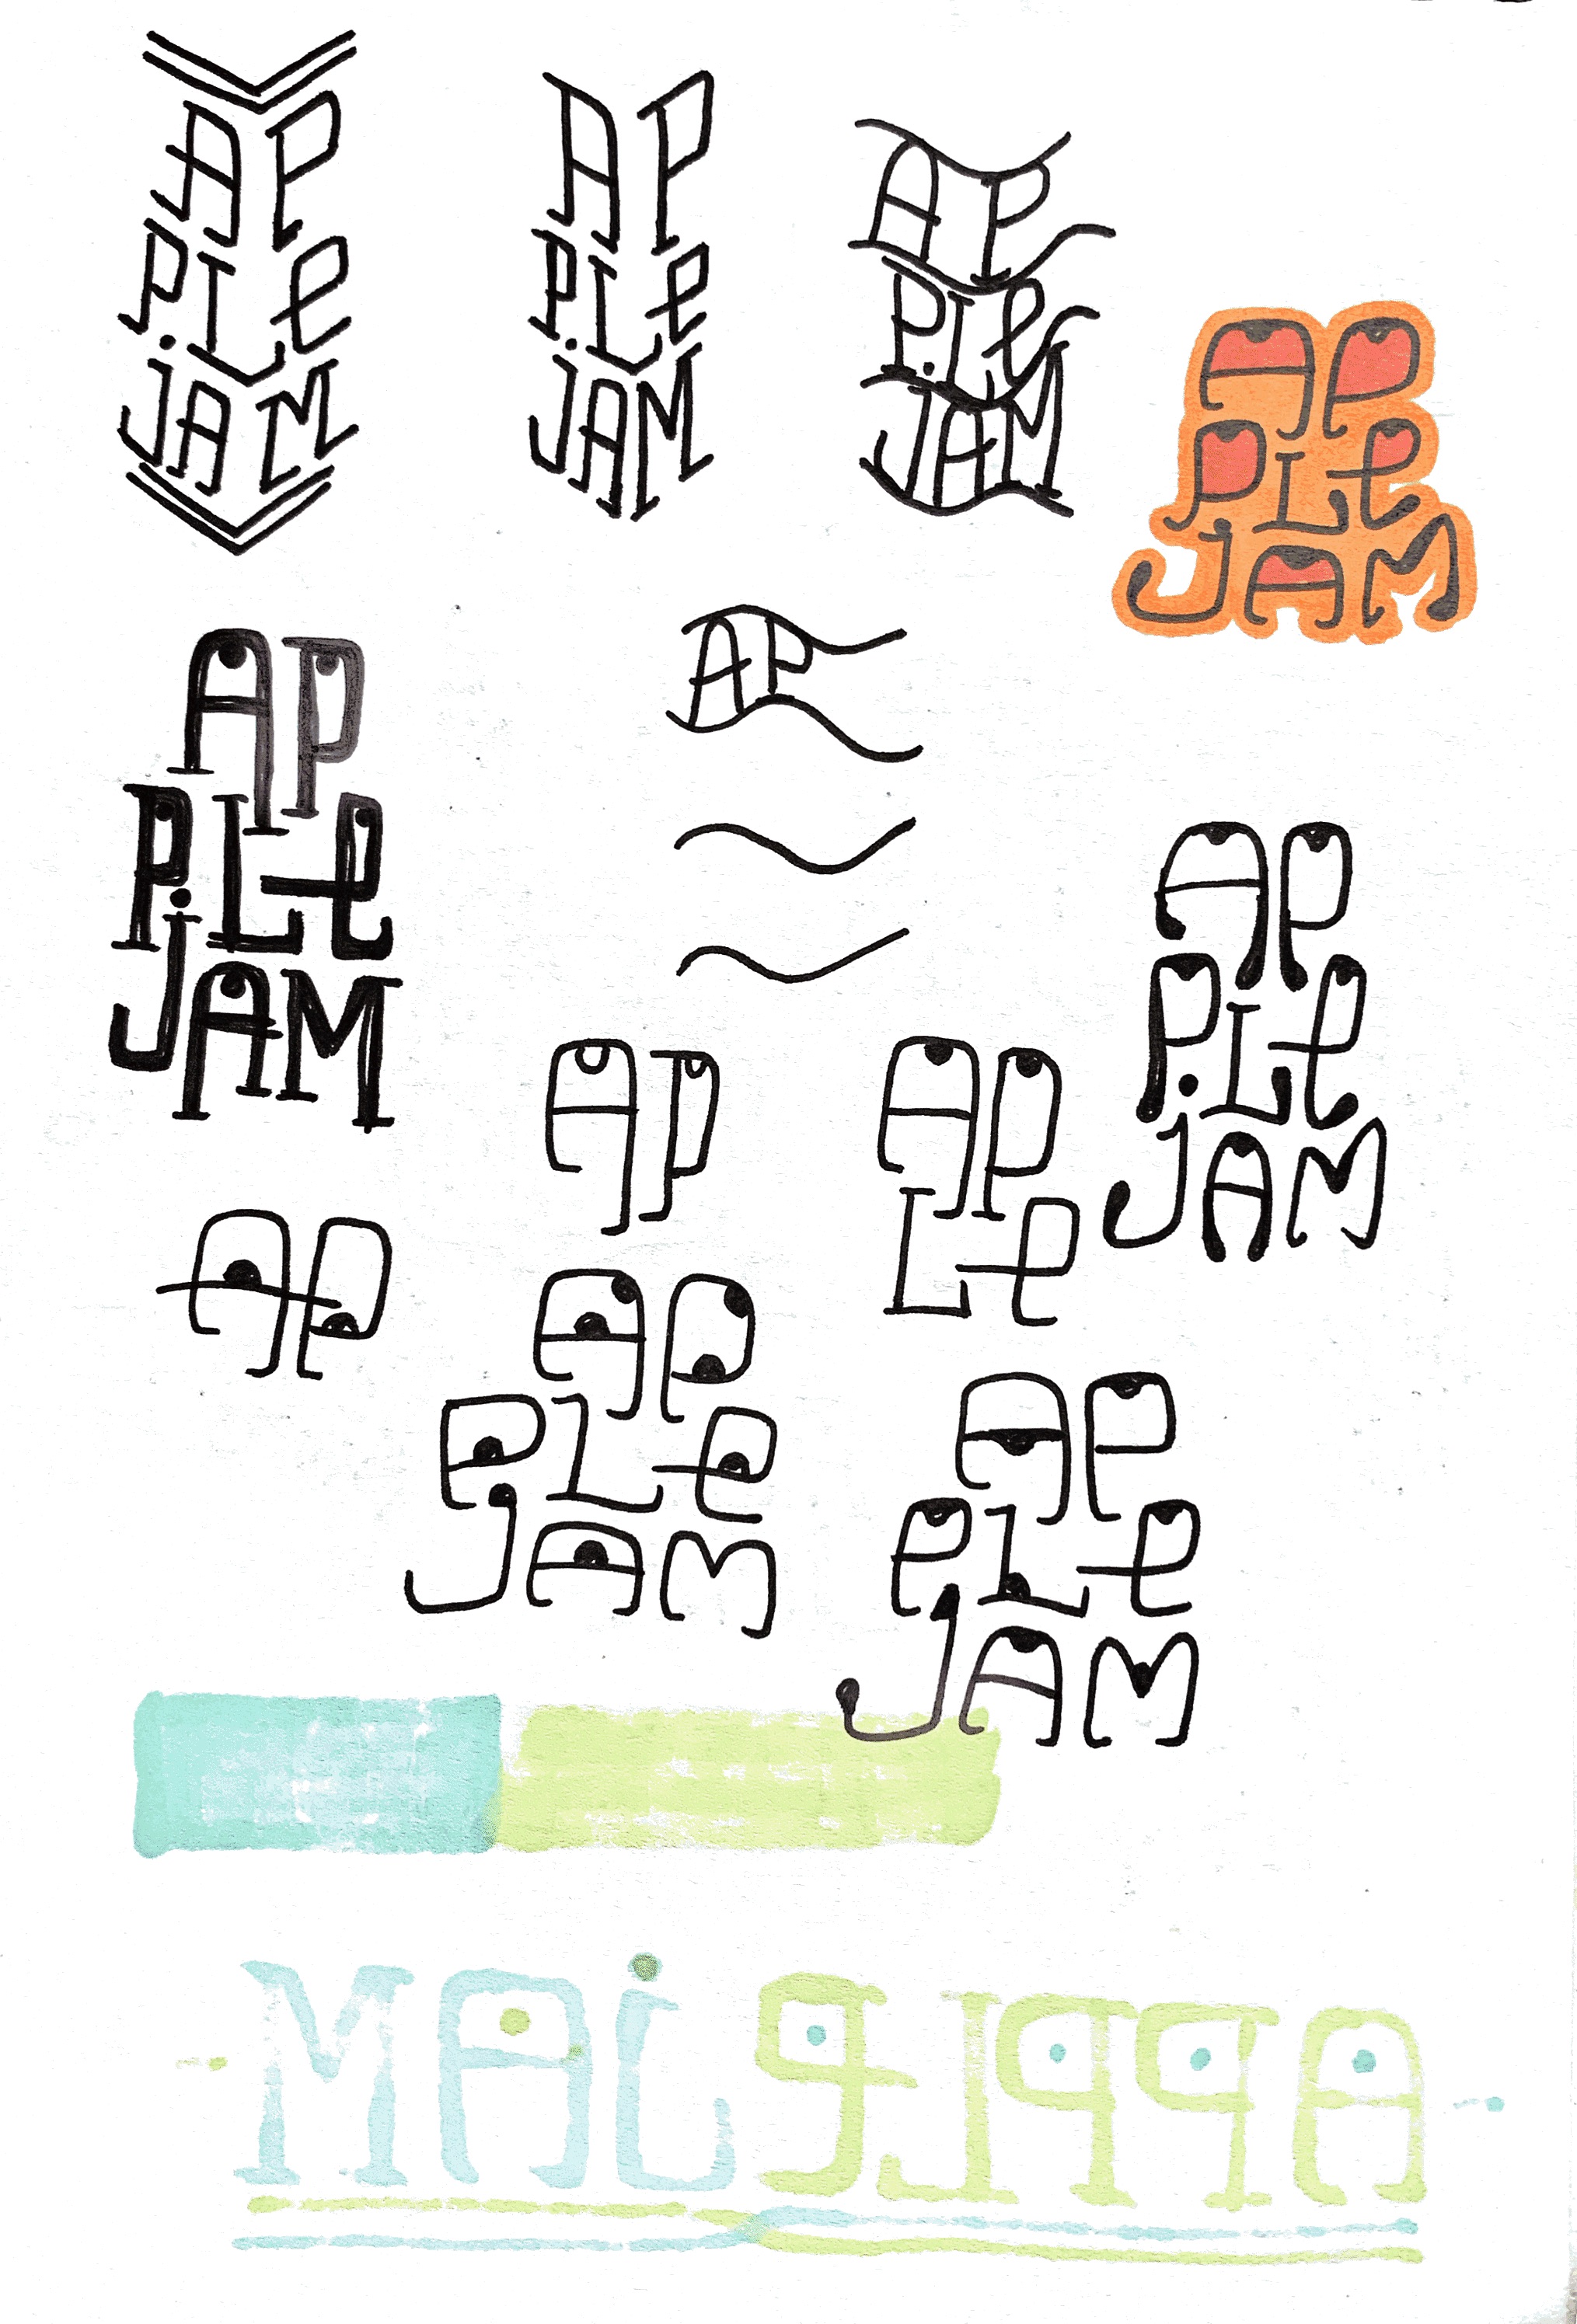 AP
PLe
jAM
AP
PLe
jAM
AP
PLe
jAM
AP
PLe
jAM
AP
PLe
jAM
AP
AP
PLe
jAM
AP
AP
Le
AP
AP
PLe
jAM
AP
PLe
jAM
APPLe jAM